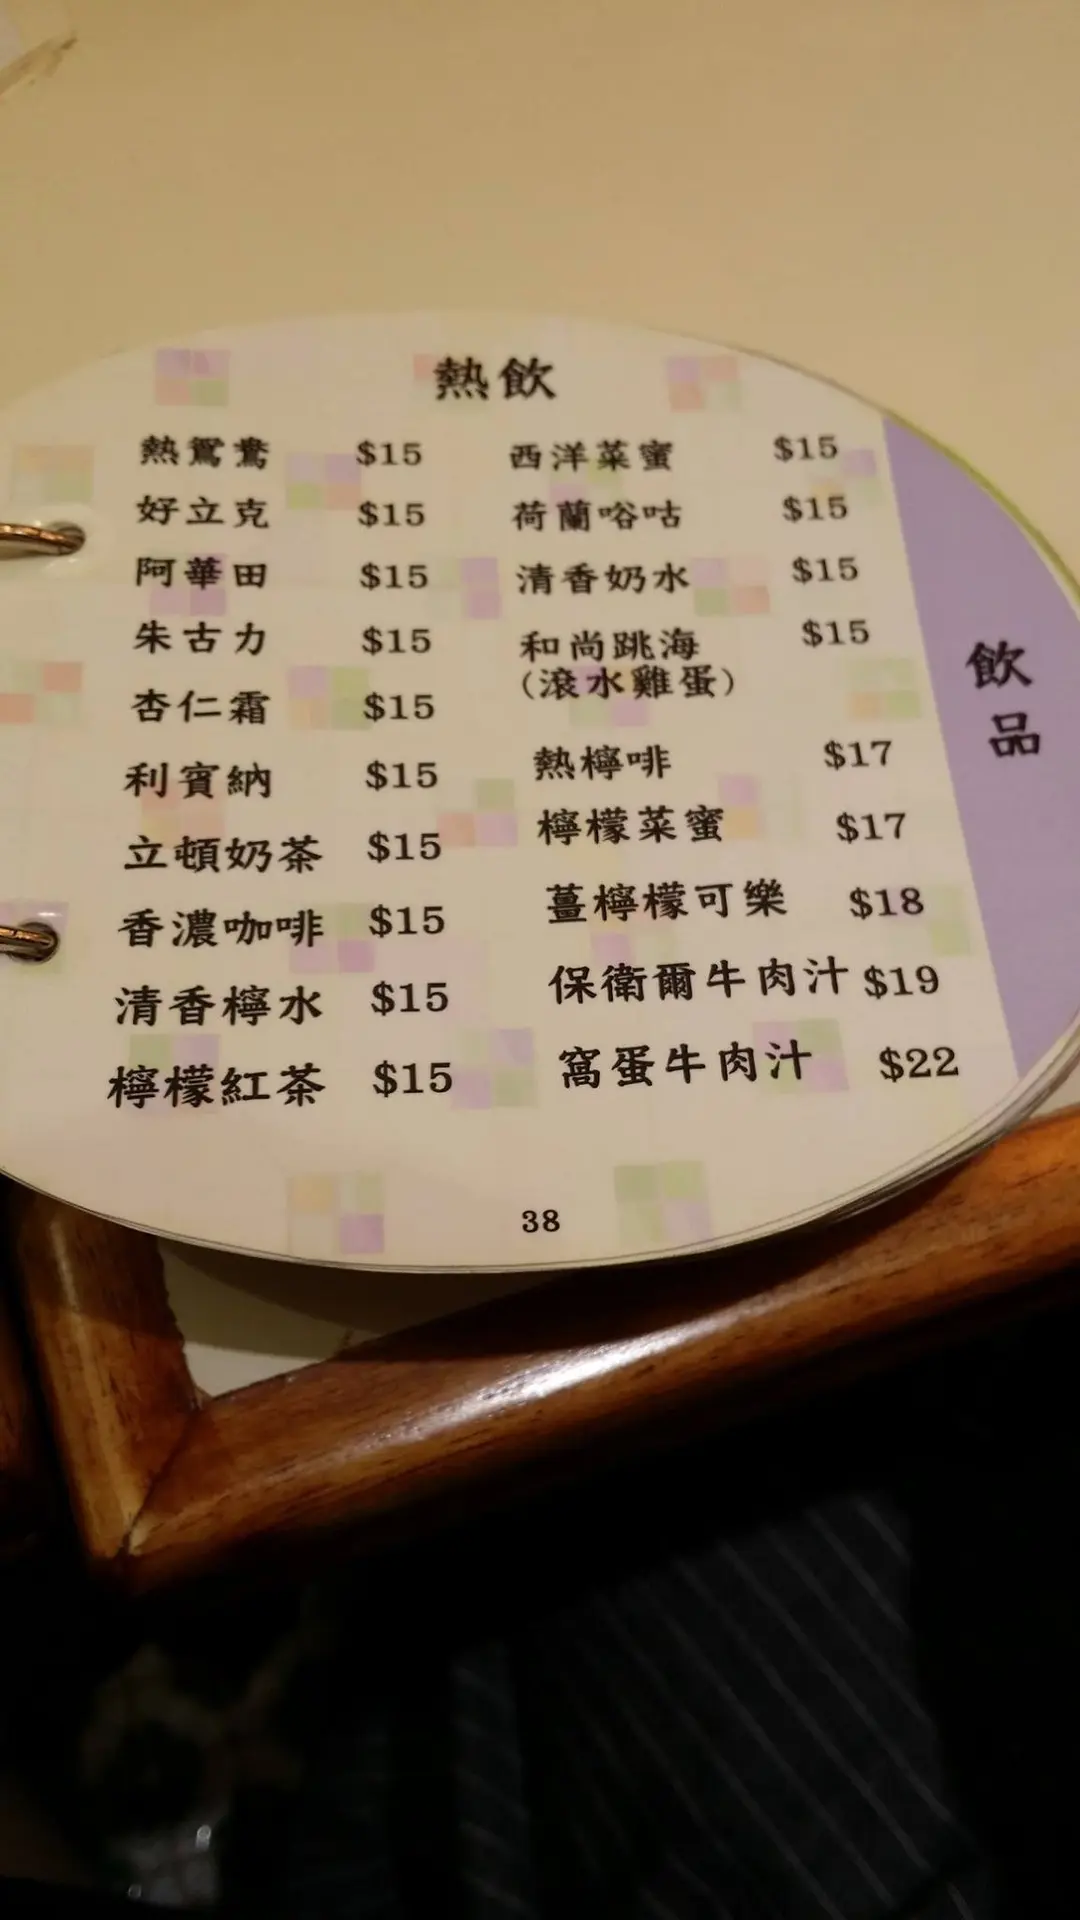 熱飲
熱鴛鴦 $15
好立克 $15
阿華田 $15
朱古力 $15
杏仁霜 $15
利賓納 $15
立頓奶茶 $15
香濃咖啡 $15
清香檸水 $15
檸檬紅茶 $15
西洋菜蜜 $15
荷蘭唂咕 $15
清香奶水 $15
和尚跳海 $15
(滾水雞蛋)
熱檸啡 $17
檸檬菜蜜 $17
薑檸檬可樂 $18
保衛爾牛肉汁 $19
窩蛋牛肉汁 $22
飲品
38